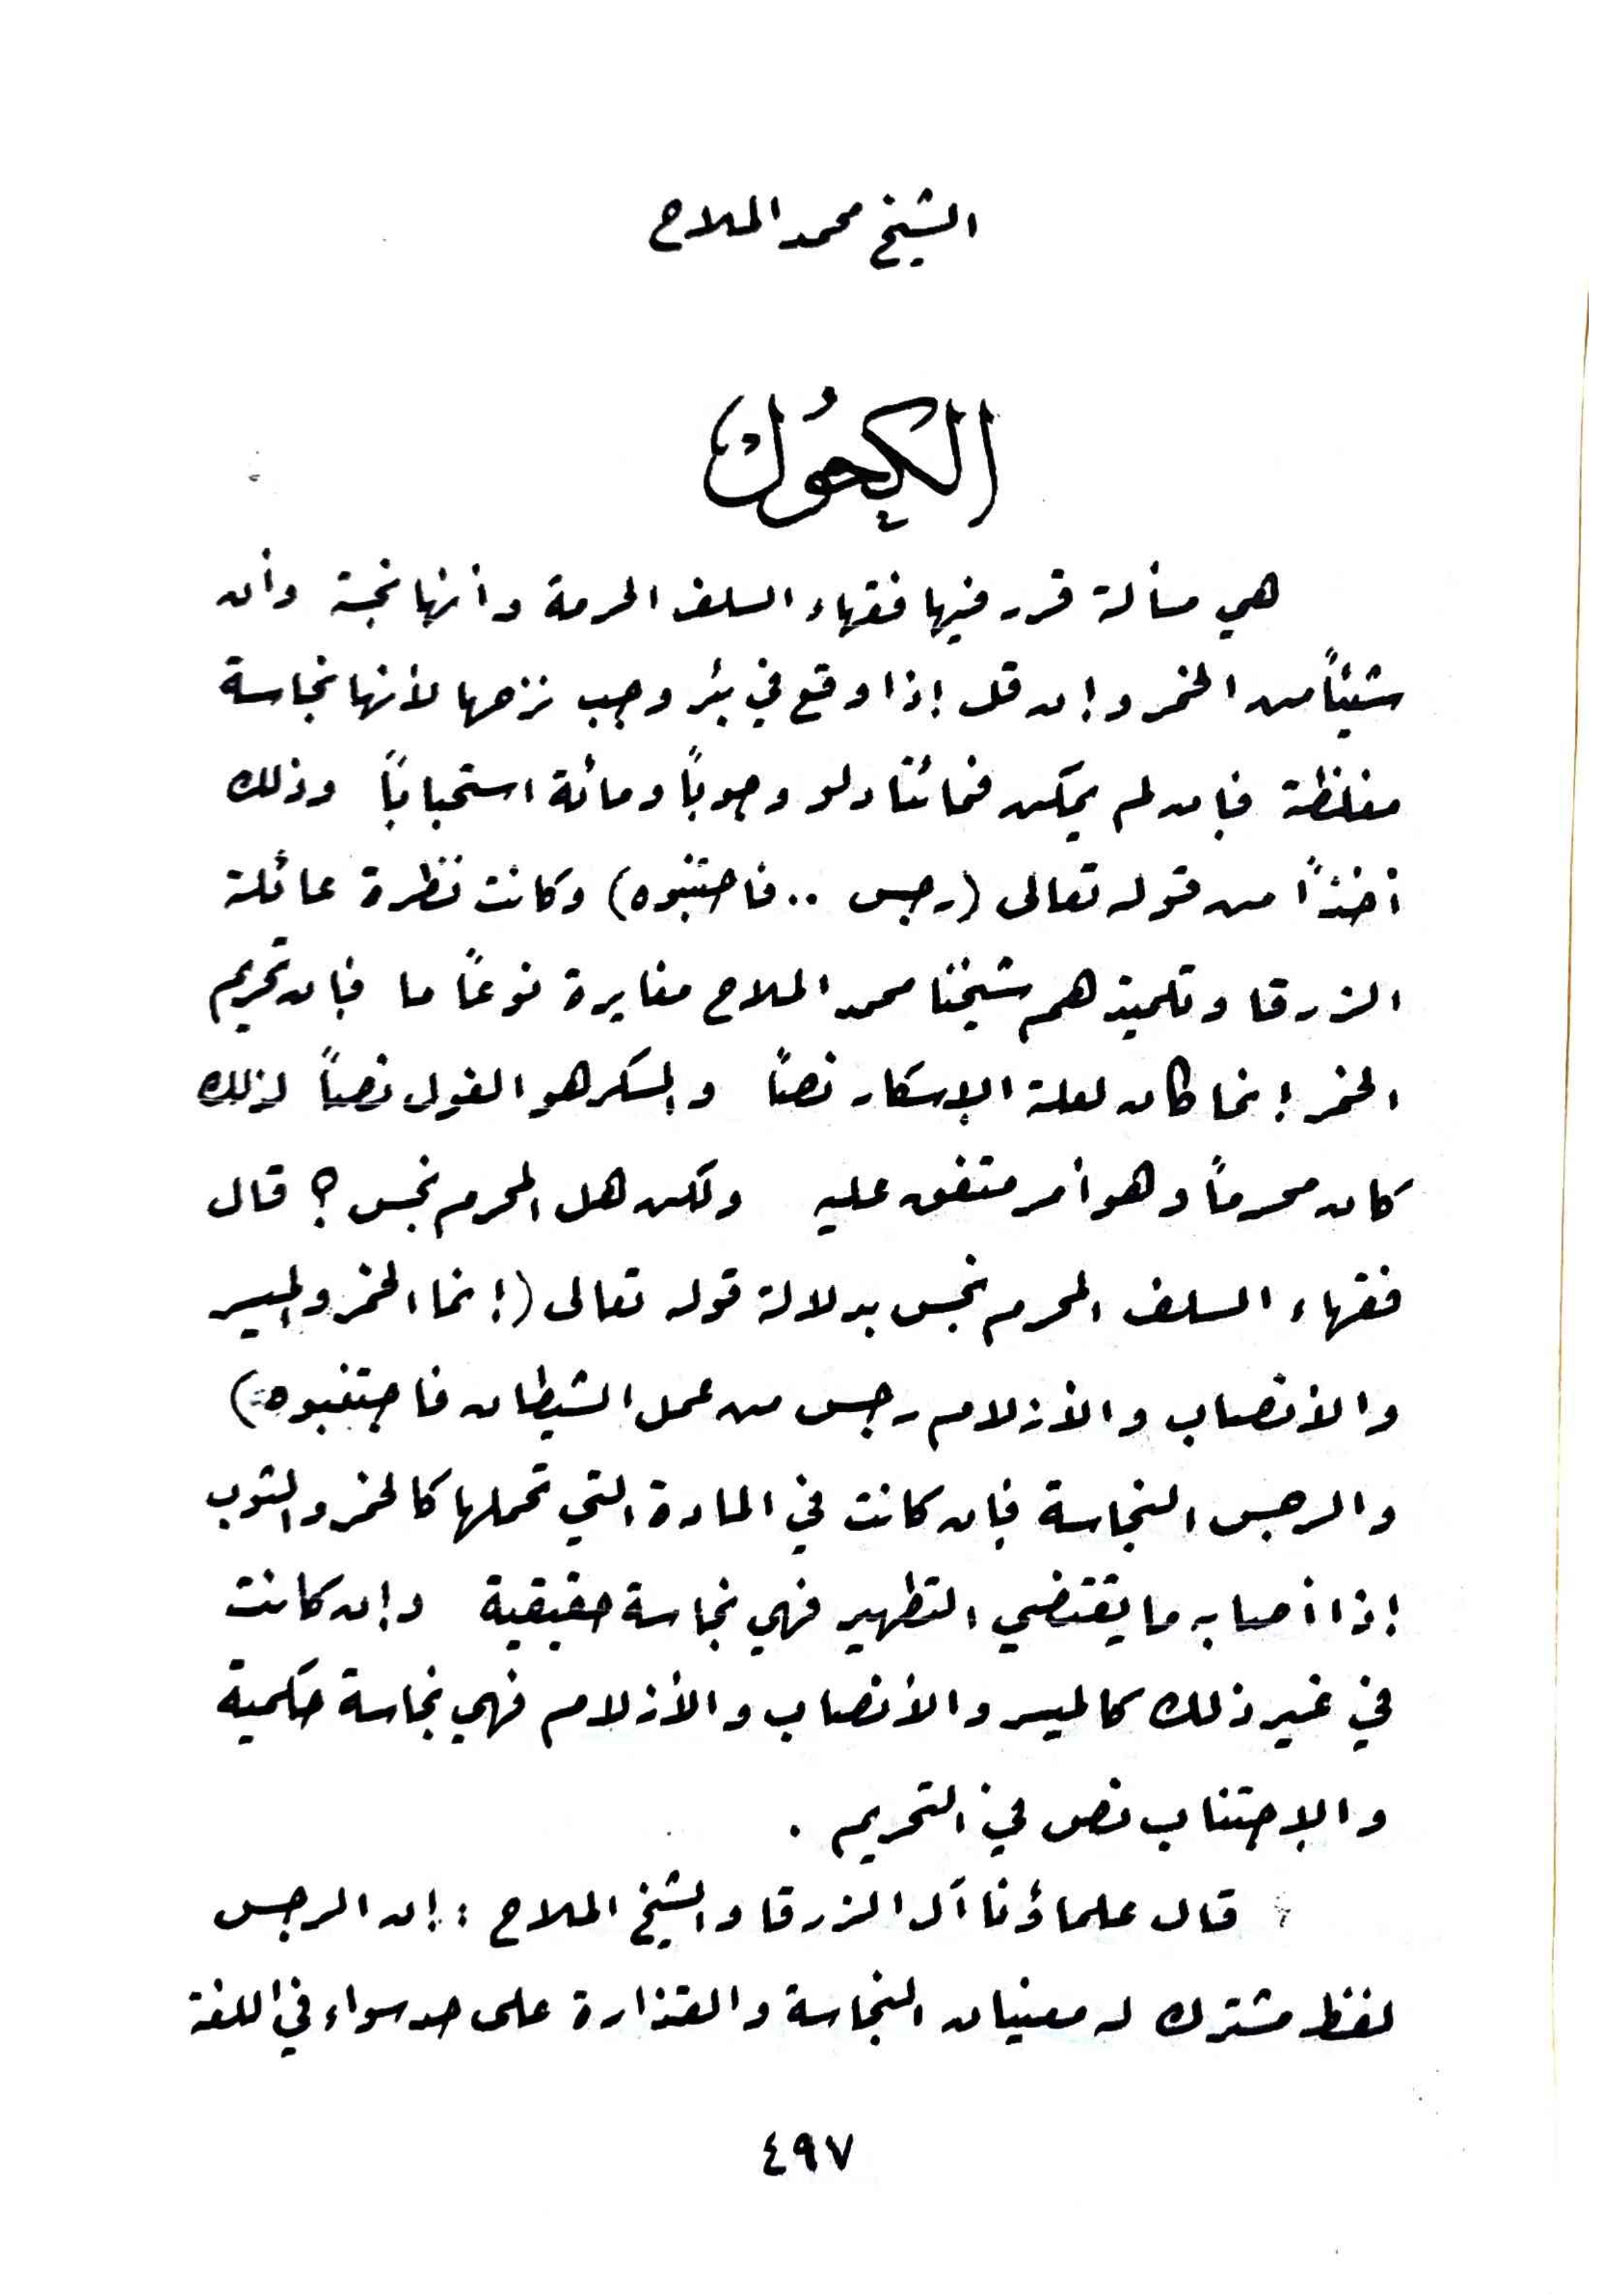 الشيخ محمد الملاح
الكحول
هي مسألة قرر فيها فقهاء السلف الحرمة وأنها نجسة وأن
شيئاً من الخمر وإن قل إذا وقع في بئر وجب نزحها لأنها نجاسة
مغلظة فإن لم يمكن فمائتا دلو وجوباً ومائة استحباباً وذلك
أخذاً من قوله تعالى (رجس .. فاجتنبوه) وكانت نظرة عائلة
الزرقا وتلميذهم شيخنا محمد الملاح مغايرة نوعاً ما فإن تحريم
الخمر إنما كان لعلة الإسكار نصاً والمسكر هو الغول نصاً لذلك
كان محرماً وهو أمر متفق عليه ولكن هل المحرم نجس؟ قال
فقهاء السلف المحرم نجس بدلالة قوله تعالى (إنما الخمر والميسر
والأنصاب والأزلام رجس من عمل الشيطان فاجتنبوه)
والرجس النجاسة فإن كانت في المادة التي تحملها كالخمر والثوب
إذا أصابه ما يقتضي التطهير فهي نجاسة حقيقية وإن كانت
في غير ذلك كالميسر والأنصاب والأزلام فهي نجاسة حكمية
والإجتناب نص في التحريم .
قال علماؤنا آل الزرقا والشيخ الملاح : إن الرجس
لفظ مشترك له معنيان النجاسة والقذارة على حد سواء في اللغة
٤٩٧